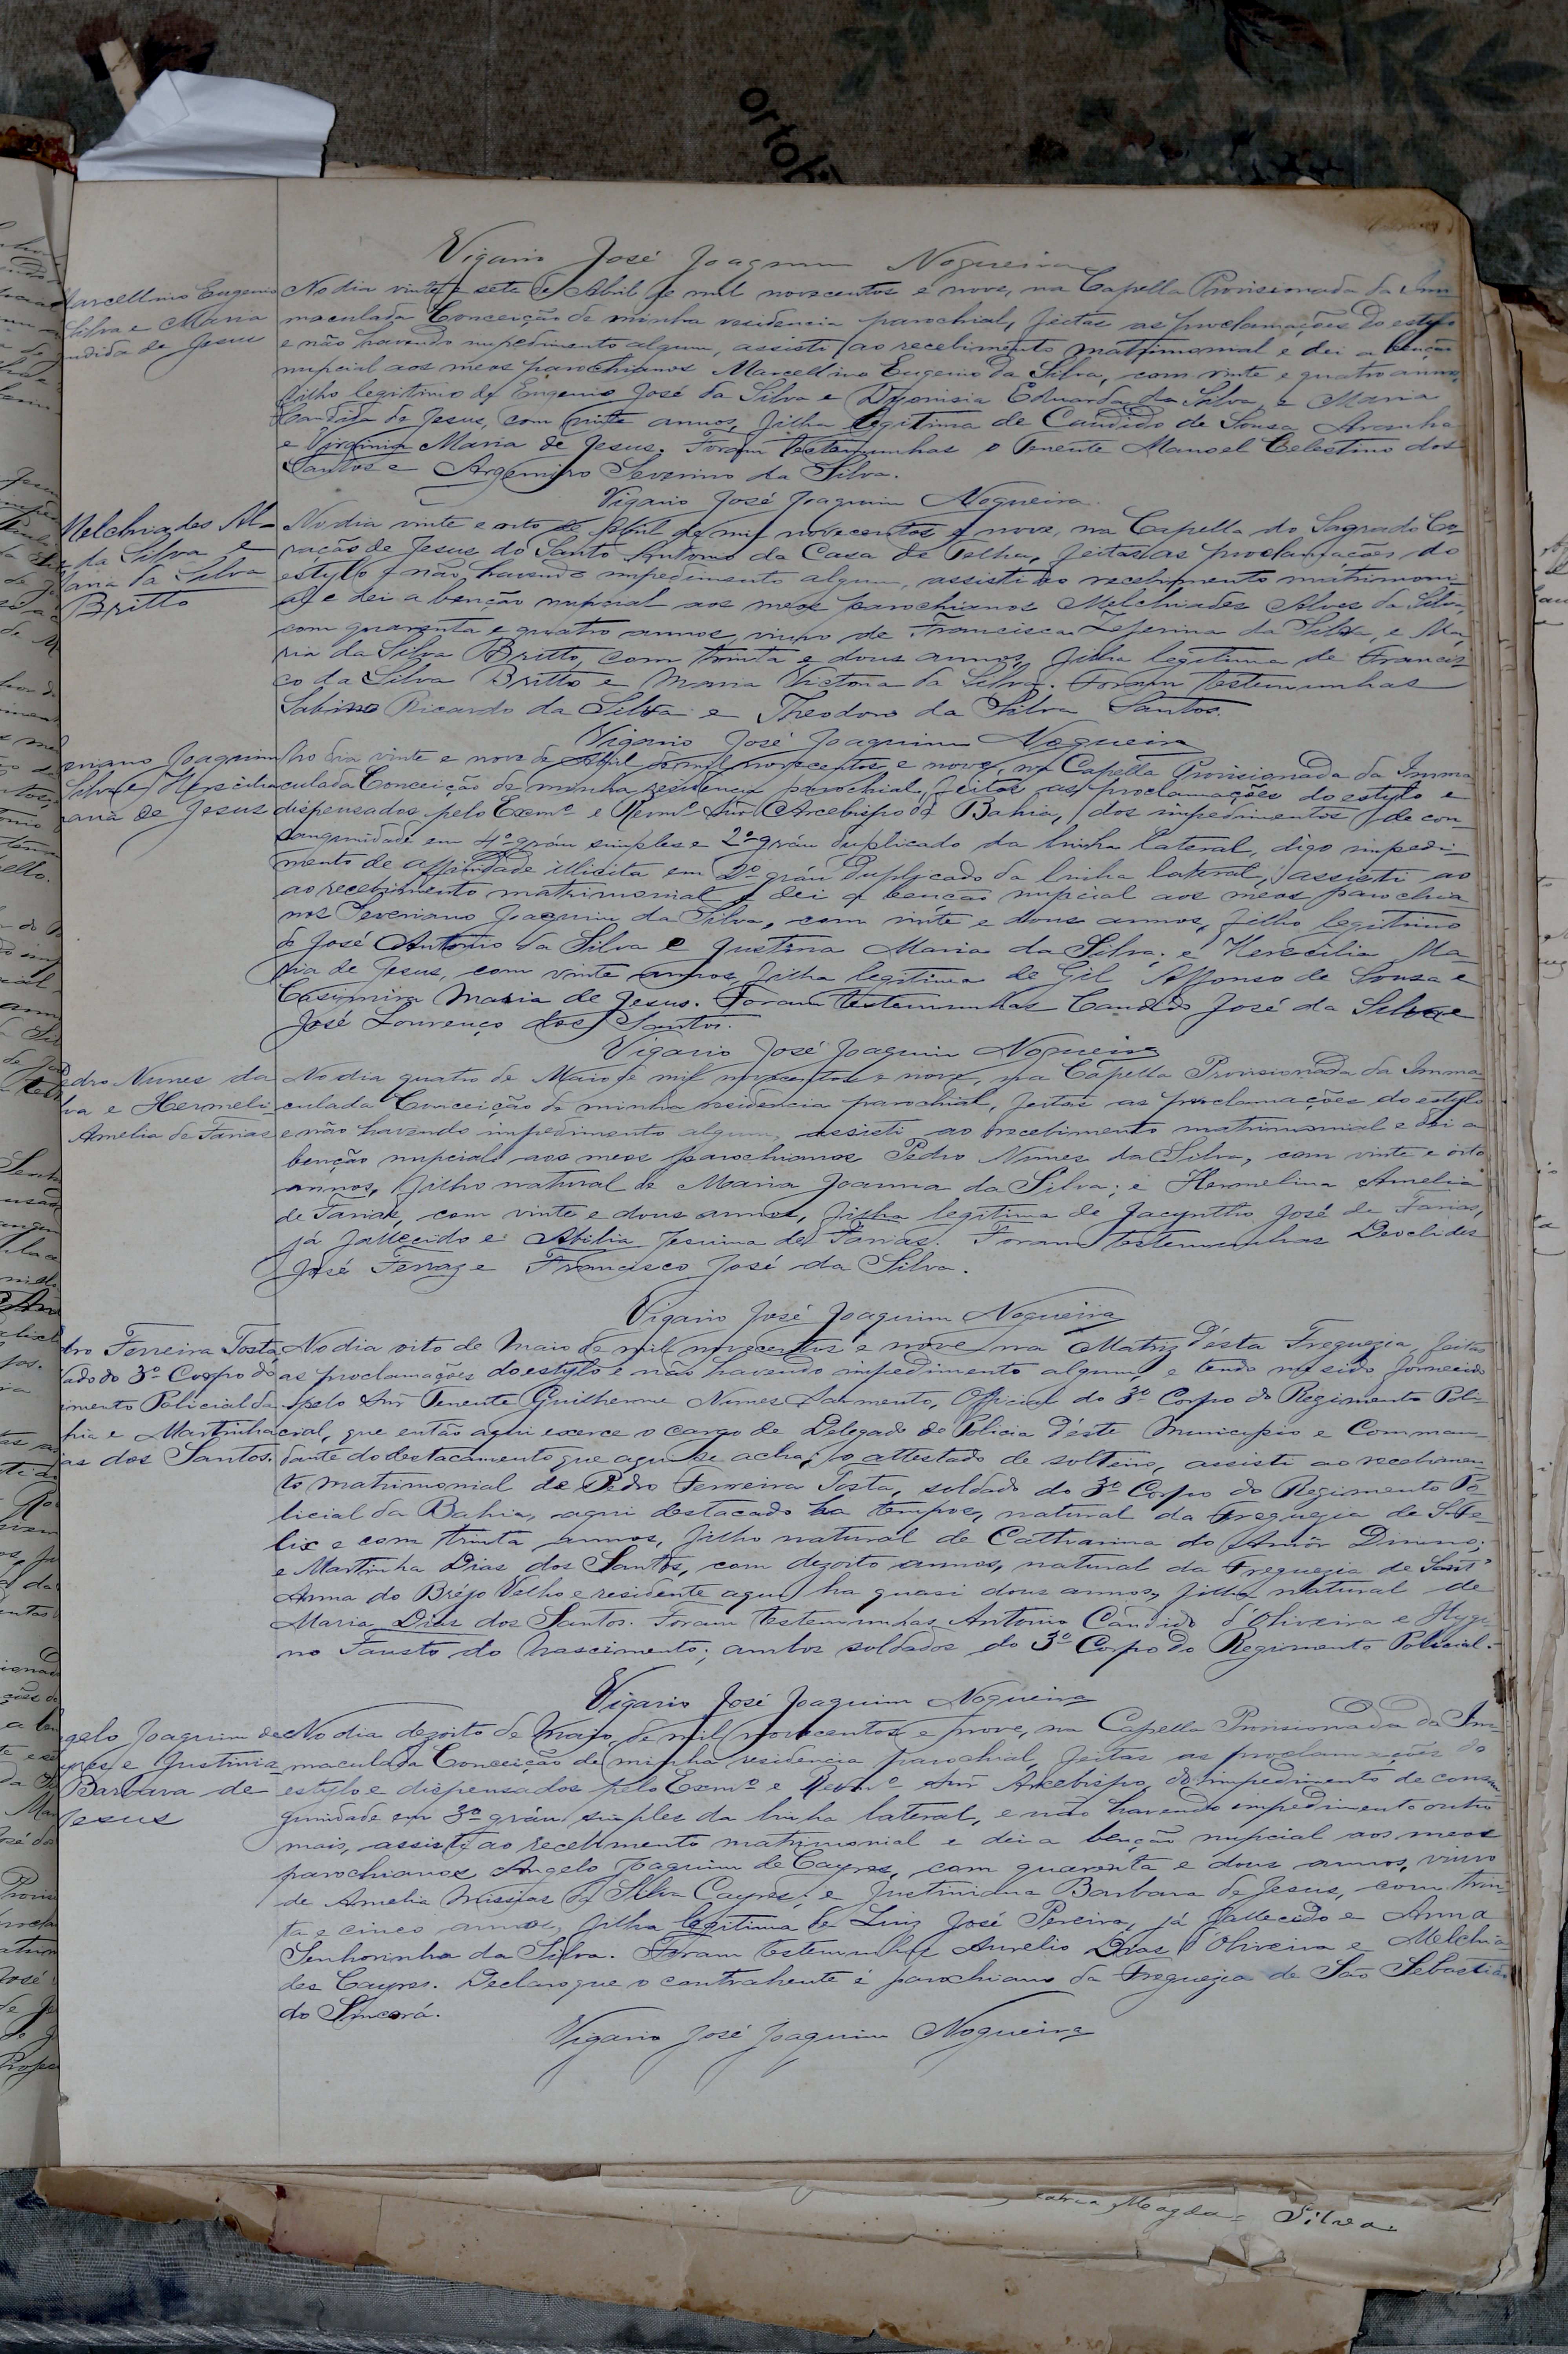 Vigario José Joaquim Nogueira
Marcellino Eugenio
Silva e Maria
ndida de Jesus
No dia vinte e sete de Abril de mil novecentos e nove, na Capella Provisionada da Im
maculada Conceição de minha residencia parochial, feitas as proclamações do estylo
e não havendo impedimento algum, assisti ao recebimento matrimonial e dei a benção
nupcial aos meos parochianos Marcellino Eugenio da Silva, com vinte e quatro annos,
filho legitimo de Eugenio José da Silva e Dyonisia Eduarda da Silva, e Maria
Candida de Jesus, com vinte annos, filha legitima de Candido de Sousa Aranha
e Virginia Maria de Jesus. Foram testemunhas o Tenente Manoel Celestino dos
Santos e Argemiro Severino da Silva.
Vigario José Joaquim Nogueira.
Melchiades Al-
da Silva e
ria da Silva
Britto
No dia vinte e oito de Abril de mil novecentos e nove, na Capella do Sagrado Co-
ração de Jesus do Santo Antonio da Casa de Telha, feitas as proclamações do
estylo e não havendo impedimento algum, assisti ao recebimento matrimoni
al e dei a benção nupcial aos meos parochianos Melchiades Alves da Silva,
com quarenta e quatro annos, viuvo de Francisca Zeferina da Silva, e Ma
ria da Silva Britto, com trinta e dous annos, filha legitima de Francis
co da Silva Britto e Maria Victoria da Silva. Foram testemunhas
Sabino Ricardo da Silva e Theodoro da Silva Santos.
Vigario José Joaquim Nogueira
eriano Joaquim
Silva e Hersilia
aria de Jesus
No dia vinte e nove de Abril de mil novecentos e nove, na Capella Provisionada da Imma
culada Conceição de minha residencia parochial, feitas as proclamações do estylo e
dispensados pelo Exmº e Revmº Snr Arcebispo da Bahia, dos impedimentos de con-
sanguinidade em 4º gráu simples e 2º gráu duplicado da linha lateral, digo impedi-
mento de affinidade illicita em 2º gráu duplicado da linha lateral, assisti ao
ao recebimento matrimonial e dei a benção nupcial aos meos parochia
nos Severiano Joaquim da Silva, com vinte e dous annos, filho legitimo
de José Antonio da Silva e Justina Maria da Silva; e Hercilia Ma
ria de Jesus, com vinte annos, filha legitima de Gil Affonso de Sousa e
Casimira Maria de Jesus. Foram testemunhas Candido José da Silva e
José Lourenço dos Santos.
Vigario José Joaquim Nogueira
edro Nunes da
lva e Hermeli
Amelia de Farias
No dia quatro de Maio de mil novecentos e nove, na Capella Provisionada da Imma-
culada Conceição de minha residencia parochial, feitas as proclamações do estylo
e não havendo impedimento algum, assisti ao recebimento matrimonial e dei a
benção nupcial aos meos parochianos Pedro Nunes da Silva, com vinte e oito
annos, filho natural de Maria Joanna da Silva; e Hermelina Amelia
de Farias, com vinte e dous annos, filha legitima de Jacyntho José de Farias,
já fallecido e Abilia Jesuina de Farias. Foram testemunhas Deoclides
José Ferraz e Francisco José da Silva.
Vigario José Joaquim Nogueira
dro Ferreira Tosta,
dado do 3º Corpo do
imento Policial da
hia e Martinha
ias dos Santos.
No dia oito de Maio de mil novecentos e nove na Matriz d'esta Freguezia, feitas
as proclamações do estylo e não havendo impedimento algum, e tendo me sido fornecido
pelo Snr Tenente Guilherme Nunes Sarmento, Official do 3º Corpo do Regimento Poli-
cial, que então aqui exerce o cargo de Delegado de Policia d'este Municipio e Comman-
dante do destacamento que aqui se acha, o attestado de solteiro, assisti ao recebimen
to matrimonial de Pedro Ferreira Tosta, soldado do 3º Corpo do Regimento Po-
licial da Bahia, aqui destacado ha tempos, natural da Freguezia de S. Fe-
lix e com trinta annos, filho natural de Catharina do Amôr Divino;
e Martinha Dias dos Santos, com dezoito annos, natural da Freguezia de Sant'
Anna do Bréjo Velho e residente aqui ha quasi dous annos, filha natural de
Maria Dias dos Santos. Foram testemunhas Antonio Candido d'Oliveira e Hygi
no Fausto do Nascimento; ambos soldados do 3º Corpo do Regimento Policial.
Vigario José Joaquim Nogueira
gelo Joaquim de
yres e Justinia
Barbara de
Jesus
No dia dezoito de Maio de mil novecentos e nove, na Capella Provisionada da Im
maculada Conceição de minha residencia parochial, feitas as proclamações do
estylo e dispensados pelo Exmº e Revmº Snr Arcebispo, do impedimento de consan
guinidade em 3º gráu simples da linha lateral, e não havendo impedimento outro
mais, assisti ao recebimento matrimonial e dei a benção nupcial aos meos
parochianos Angelo Joaquim de Cayres, com quarenta e dous annos, viuvo
de Amelia Missias da Silva Cayres; e Justiniana Barbara de Jesus, com trin
ta e cinco annos, filha legitima de Luiz José Pereira, já fallecido e Anna
Senhorinha da Silva. Foram testemunhas Aurelio Dias d'Oliveira e Melchia
des Cayres. Declaro que o contrahente é parochiano da Freguezia de São Sebastião
do Sincorá.
Vigario José Joaquim Nogueira
Magda Silva